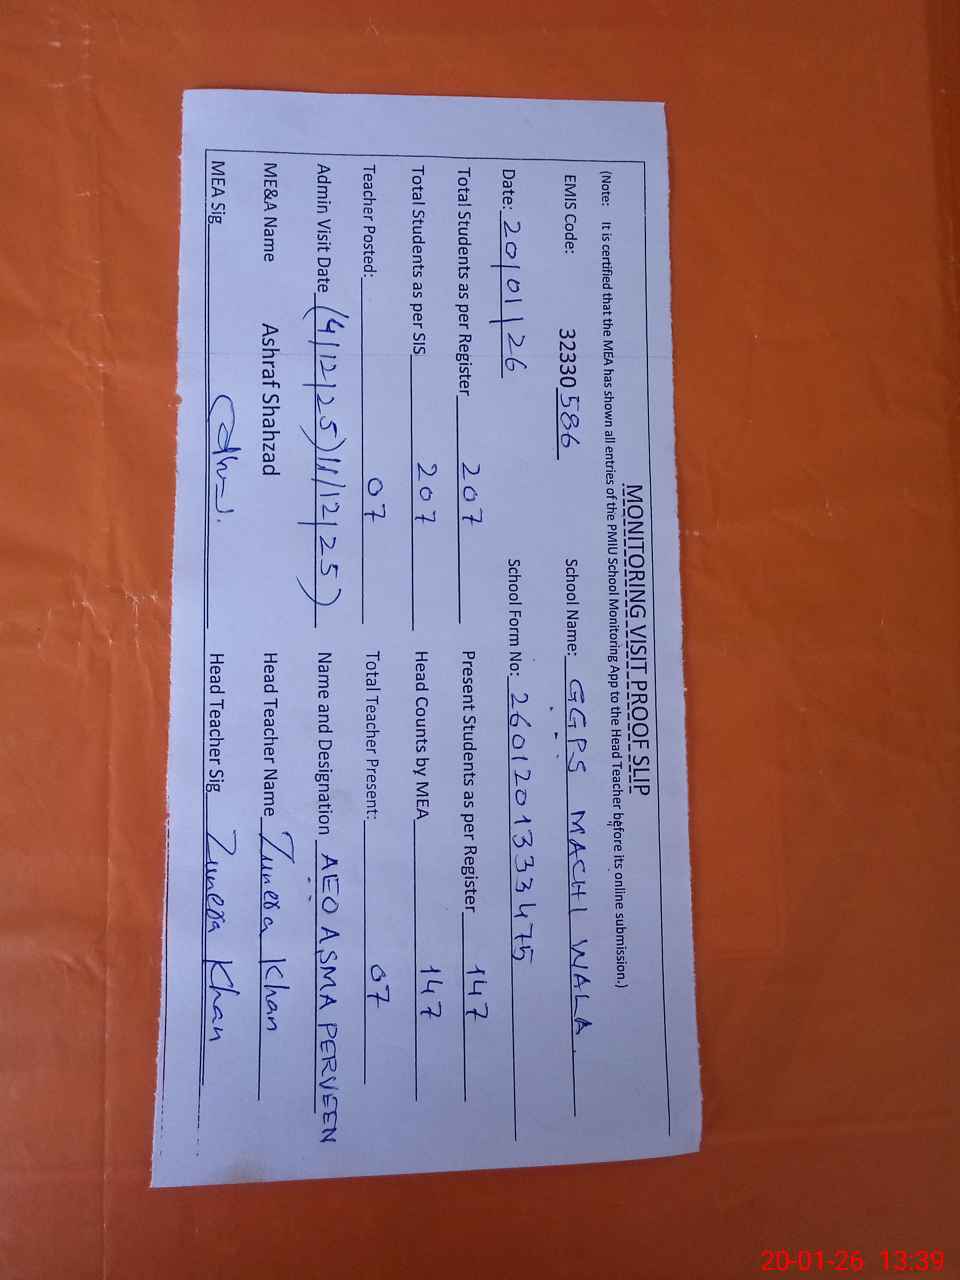 MONITORING VISIT PROOF SLIP
(Note: It is certified that the MEA has shown all entries of the PMIU School Monitoring App to the Head Teacher before its online submission.)
EMIS Code: 32330586 School Name: GGPS MACHI WALA
Date: 20/01/26 School Form No: 2601201333475
Total Students as per Register 207 Present Students as per Register 147
Total Students as per SIS 207 Head Counts by MEA 147
Teacher Posted: 07 Total Teacher Present: 07
Admin Visit Date (4/12/25)11/12/25) Name and Designation AEO ASMA PERVEEN
ME&A Name Ashraf Shahzad Head Teacher Name Zunera Khan
MEA Sig Head Teacher Sig Zunera Khan
20-01-26 13:39